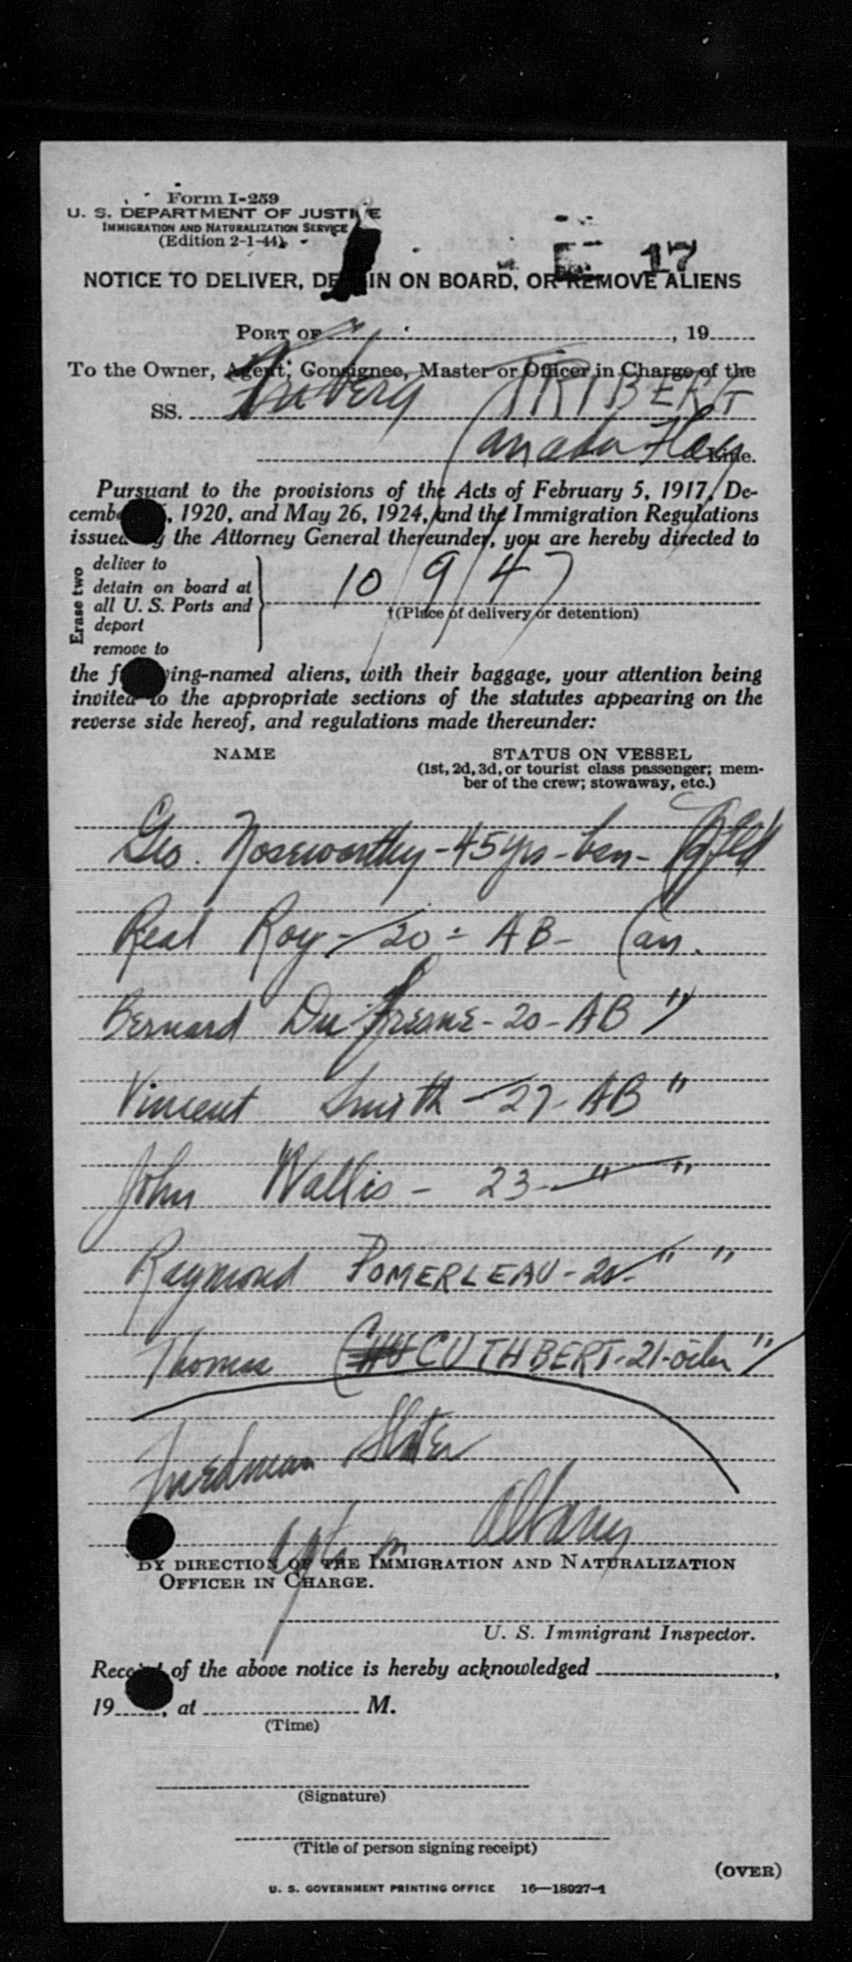 Form I-259
U. S. DEPARTMENT OF JUSTICE
IMMIGRATION AND NATURALIZATION SERVICE
(Edition 2-1-44)
17
NOTICE TO DELIVER, DETAIN ON BOARD, OR REMOVE ALIENS
PORT OF , 19
To the Owner, Agent, Consignee, Master or Officer in Charge of the
SS. Triberg TRIBERT
Canada Flag Line.
Pursuant to the provisions of the Acts of February 5, 1917, De-
cember , 1920, and May 26, 1924, and the Immigration Regulations
issued by the Attorney General thereunder, you are hereby directed to
Erase two
deliver to
detain on board at
all U. S. Ports and
deport
remove to
10/9/47
†(Place of delivery or detention)
the following-named aliens, with their baggage, your attention being
invited to the appropriate sections of the statutes appearing on the
reverse side hereof, and regulations made thereunder:
NAME STATUS ON VESSEL
(1st, 2d, 3d, or tourist class passenger; mem-
ber of the crew; stowaway, etc.)
Geo. Noseworthy - 45 yrs - - Nfld
Real Roy - 20 - AB - Can.
Bernard Du Fresne - 20 - AB "
Vincent Smith - 27 - AB "
John Wallis - 23 - " "
Raymond POMERLEAU - 20 - " "
Thomas CUTHBERT - 21 - oiler "
Slater
Albany
BY DIRECTION OF THE IMMIGRATION AND NATURALIZATION
OFFICER IN CHARGE.
U. S. Immigrant Inspector.
Receipt of the above notice is hereby acknowledged ,
19 , at M.
(Time)
(Signature)
(Title of person signing receipt)
(OVER)
U. S. GOVERNMENT PRINTING OFFICE 16—18927-1